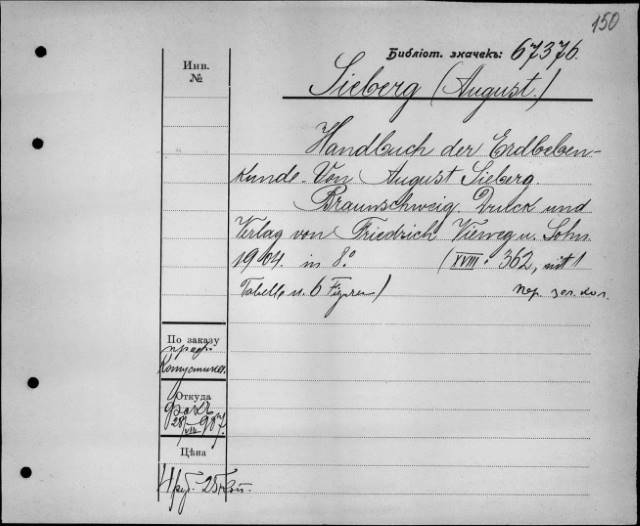 150
Библіот. значекъ: 67376.
Инв.
№
Sieberg (August.)
Handbuch der Erdbeben-
kunde. Von August Sieberg.
Braunschweig. Druck und
Verlag von Friedrich Vieweg u. Sohn.
1904. in 8º (XVIII. 362, mit 1
Tabelle u. 6 Figuren)
пер. зел. кол.
По заказу
проф.
Откуда
28
Цѣна
4 руб. 25 коп.